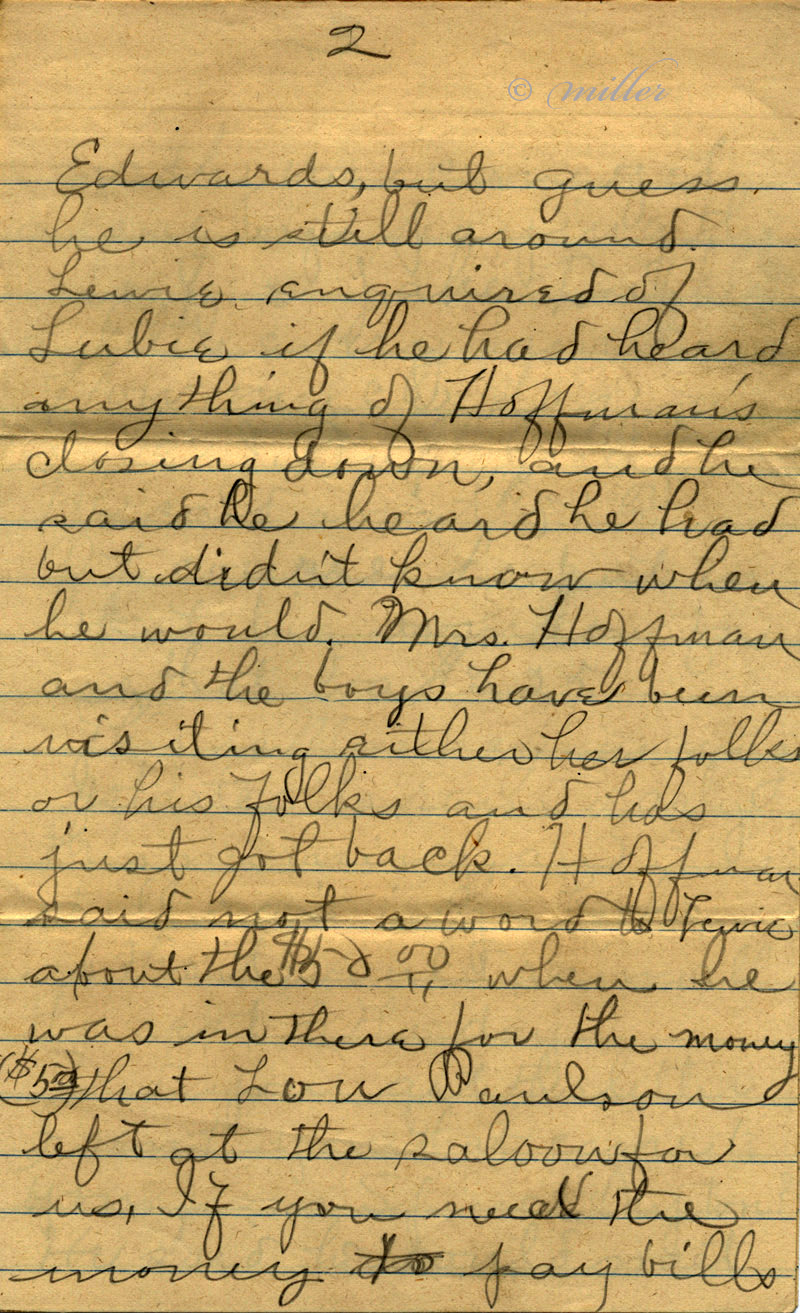 2
© miller
Edwards, but guess
he is still around.
Lewie enquired of
Lubie if he had heard
anything of Hoffman's
closing down, and he
said he heard he had
but didn't know when
he would. Mrs. Hoffman
and the boys have been
visiting either her folks
or his folks and has
just got back. Hoffman
said not a word to Lewie
about the $50 00 when he
was in there for the money
($5.00) that Lou Paulson
left at the saloon for
us. If you need the
money to pay bills